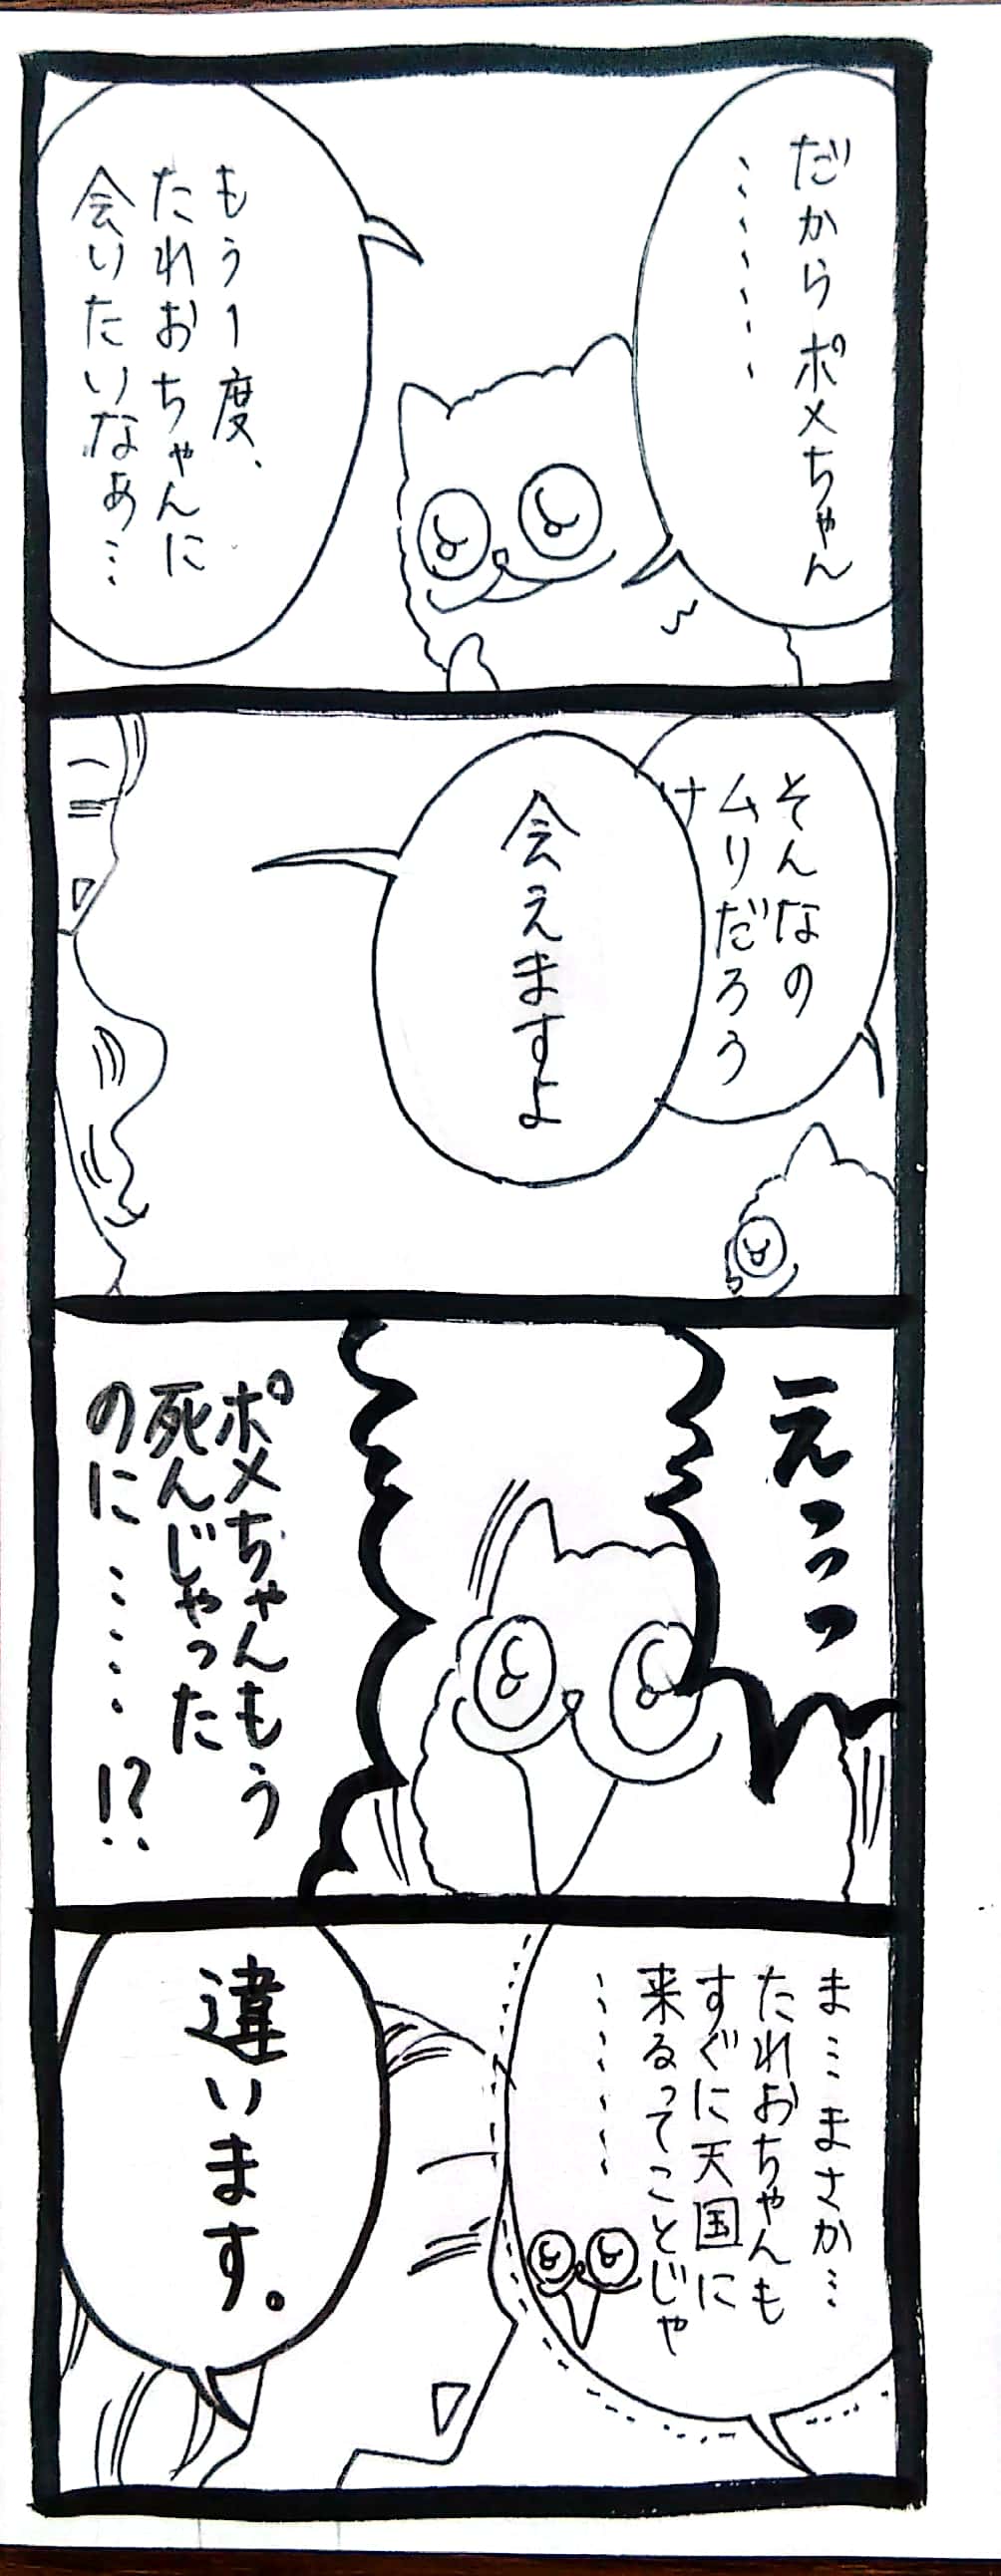 だからポメちゃん
……
もう1度、
たれおちゃんに
会いたいなぁ…
そんなの
ムリだろう
け
会えますよ
えっっっ
ポメちゃんもう
死んじゃった
のに……!?
ま…まさか…
たれおちゃんも
すぐに天国に
来るってことじゃ
………
違います。